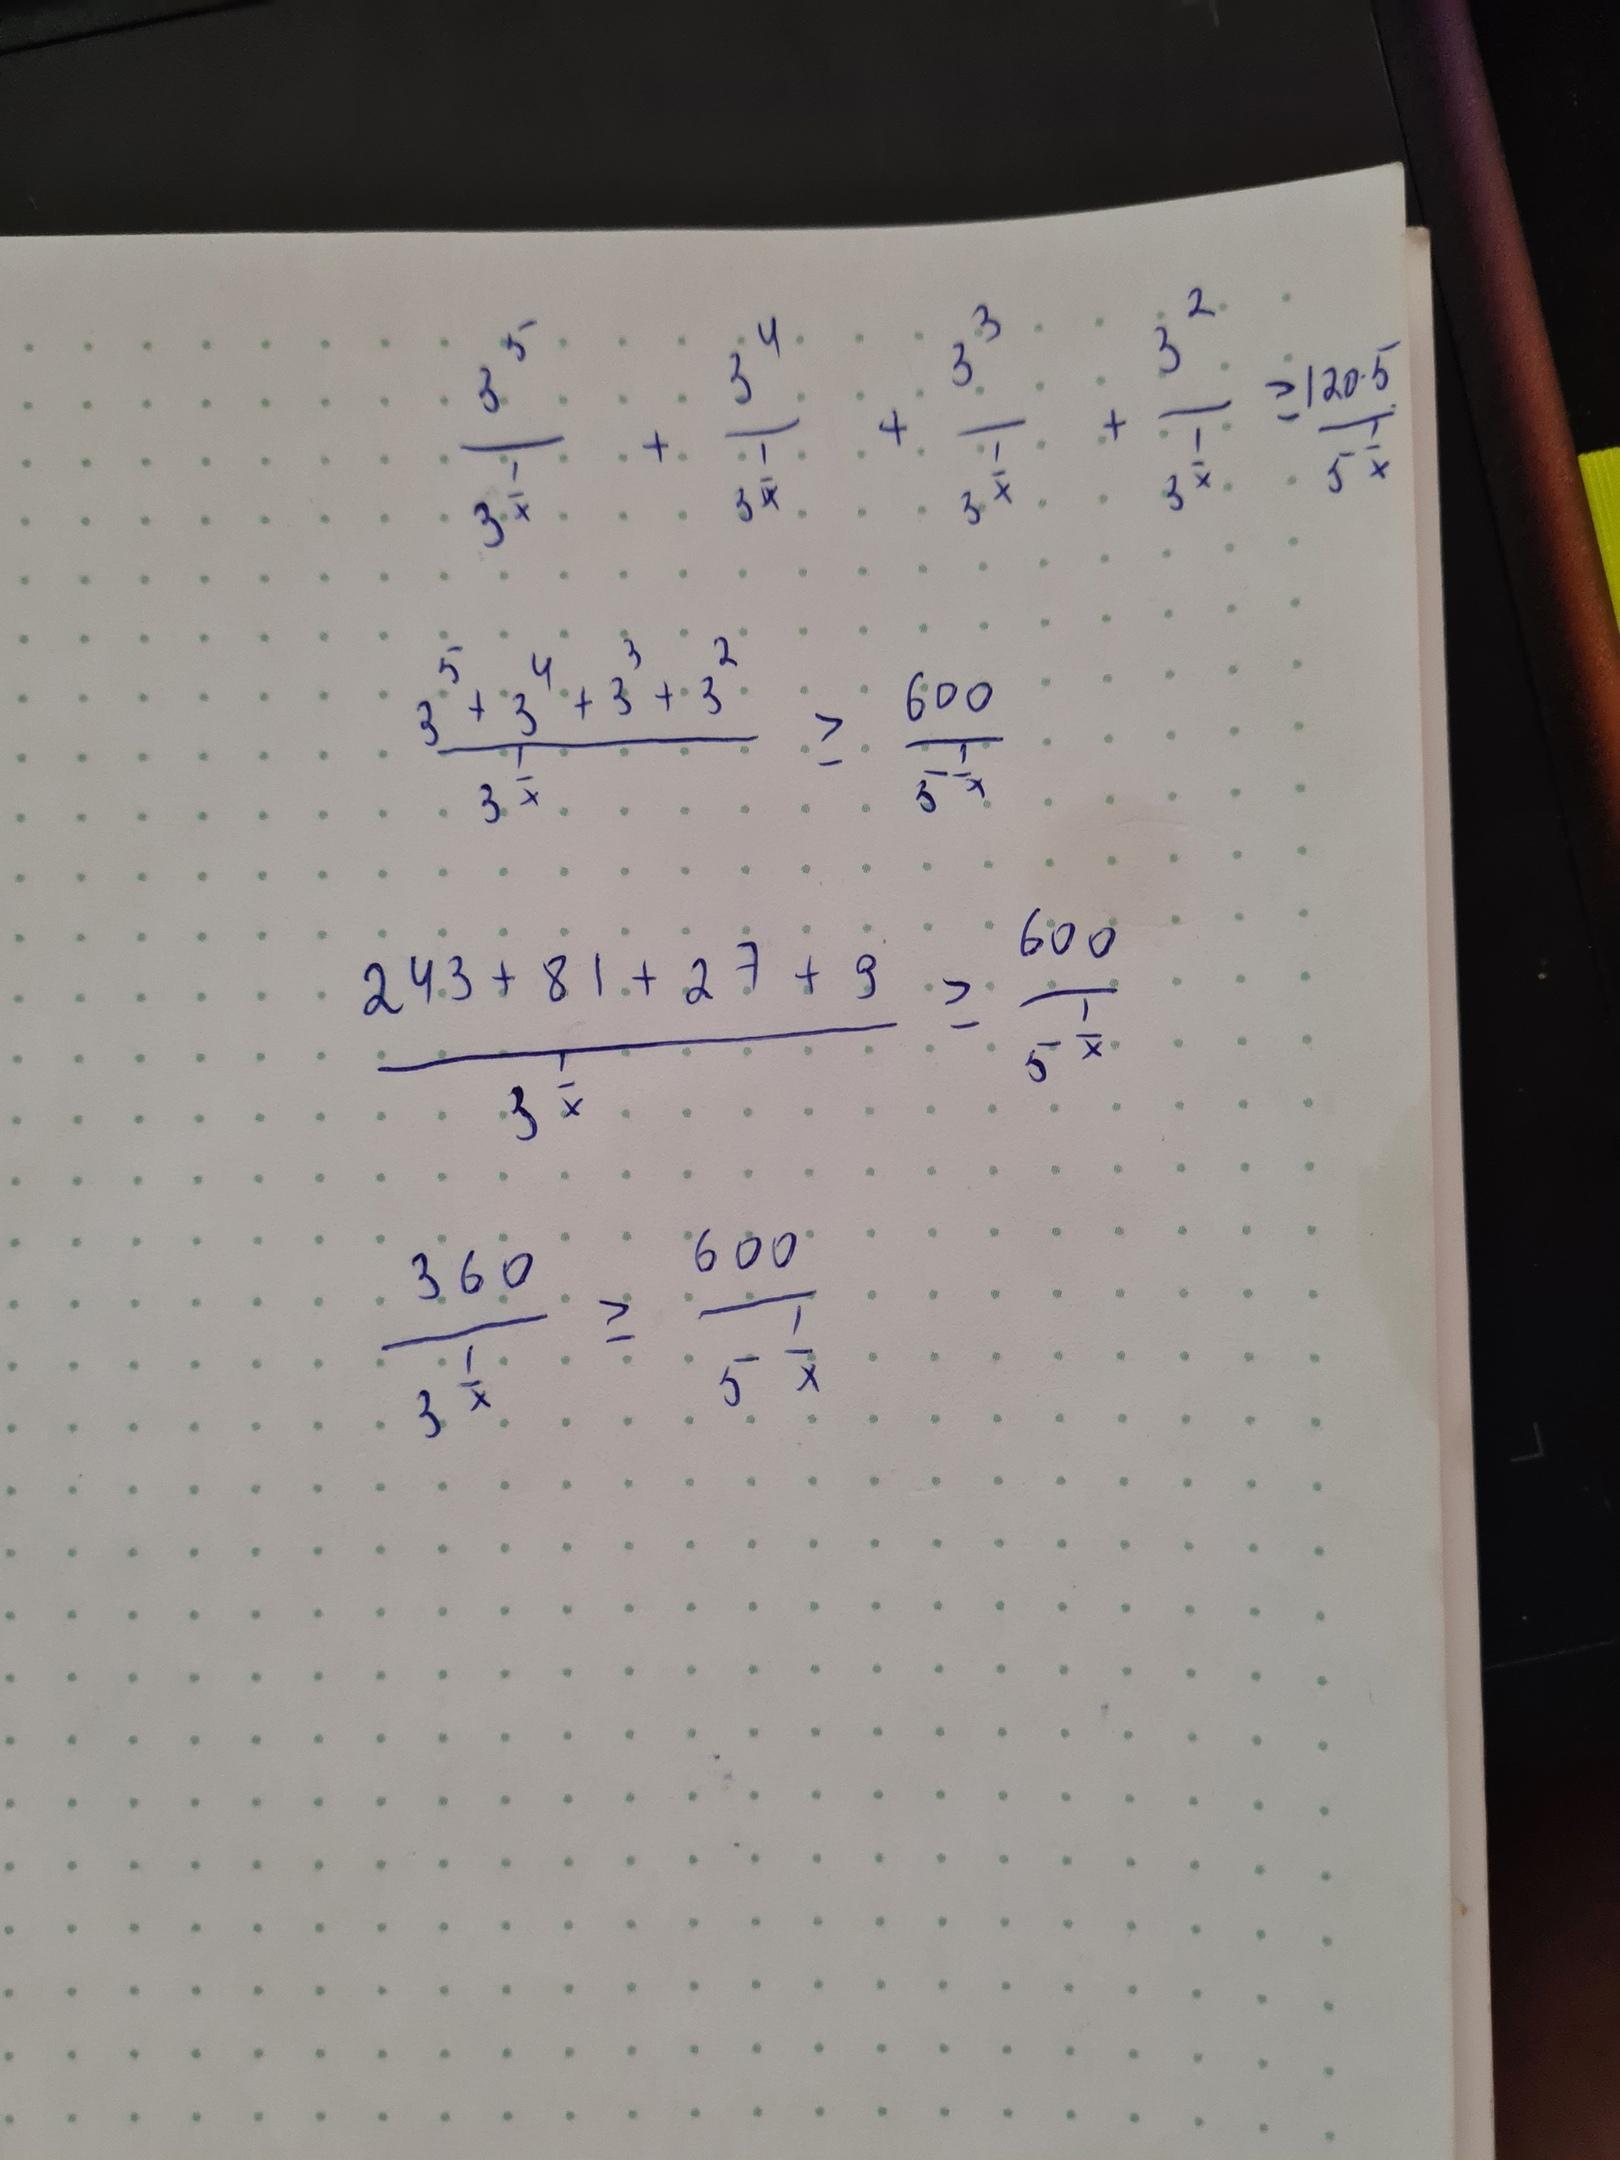 3^5/3^(1/x) + 3^4/3^(1/x) + 3^3/3^(1/x) + 3^2/3^(1/x) ≥ 120·5/5^(1/x)
(3^5 + 3^4 + 3^3 + 3^2)/3^(1/x) ≥ 600/5^(1/x)
(243 + 81 + 27 + 9)/3^(1/x) ≥ 600/5^(1/x)
360/3^(1/x) ≥ 600/5^(1/x)